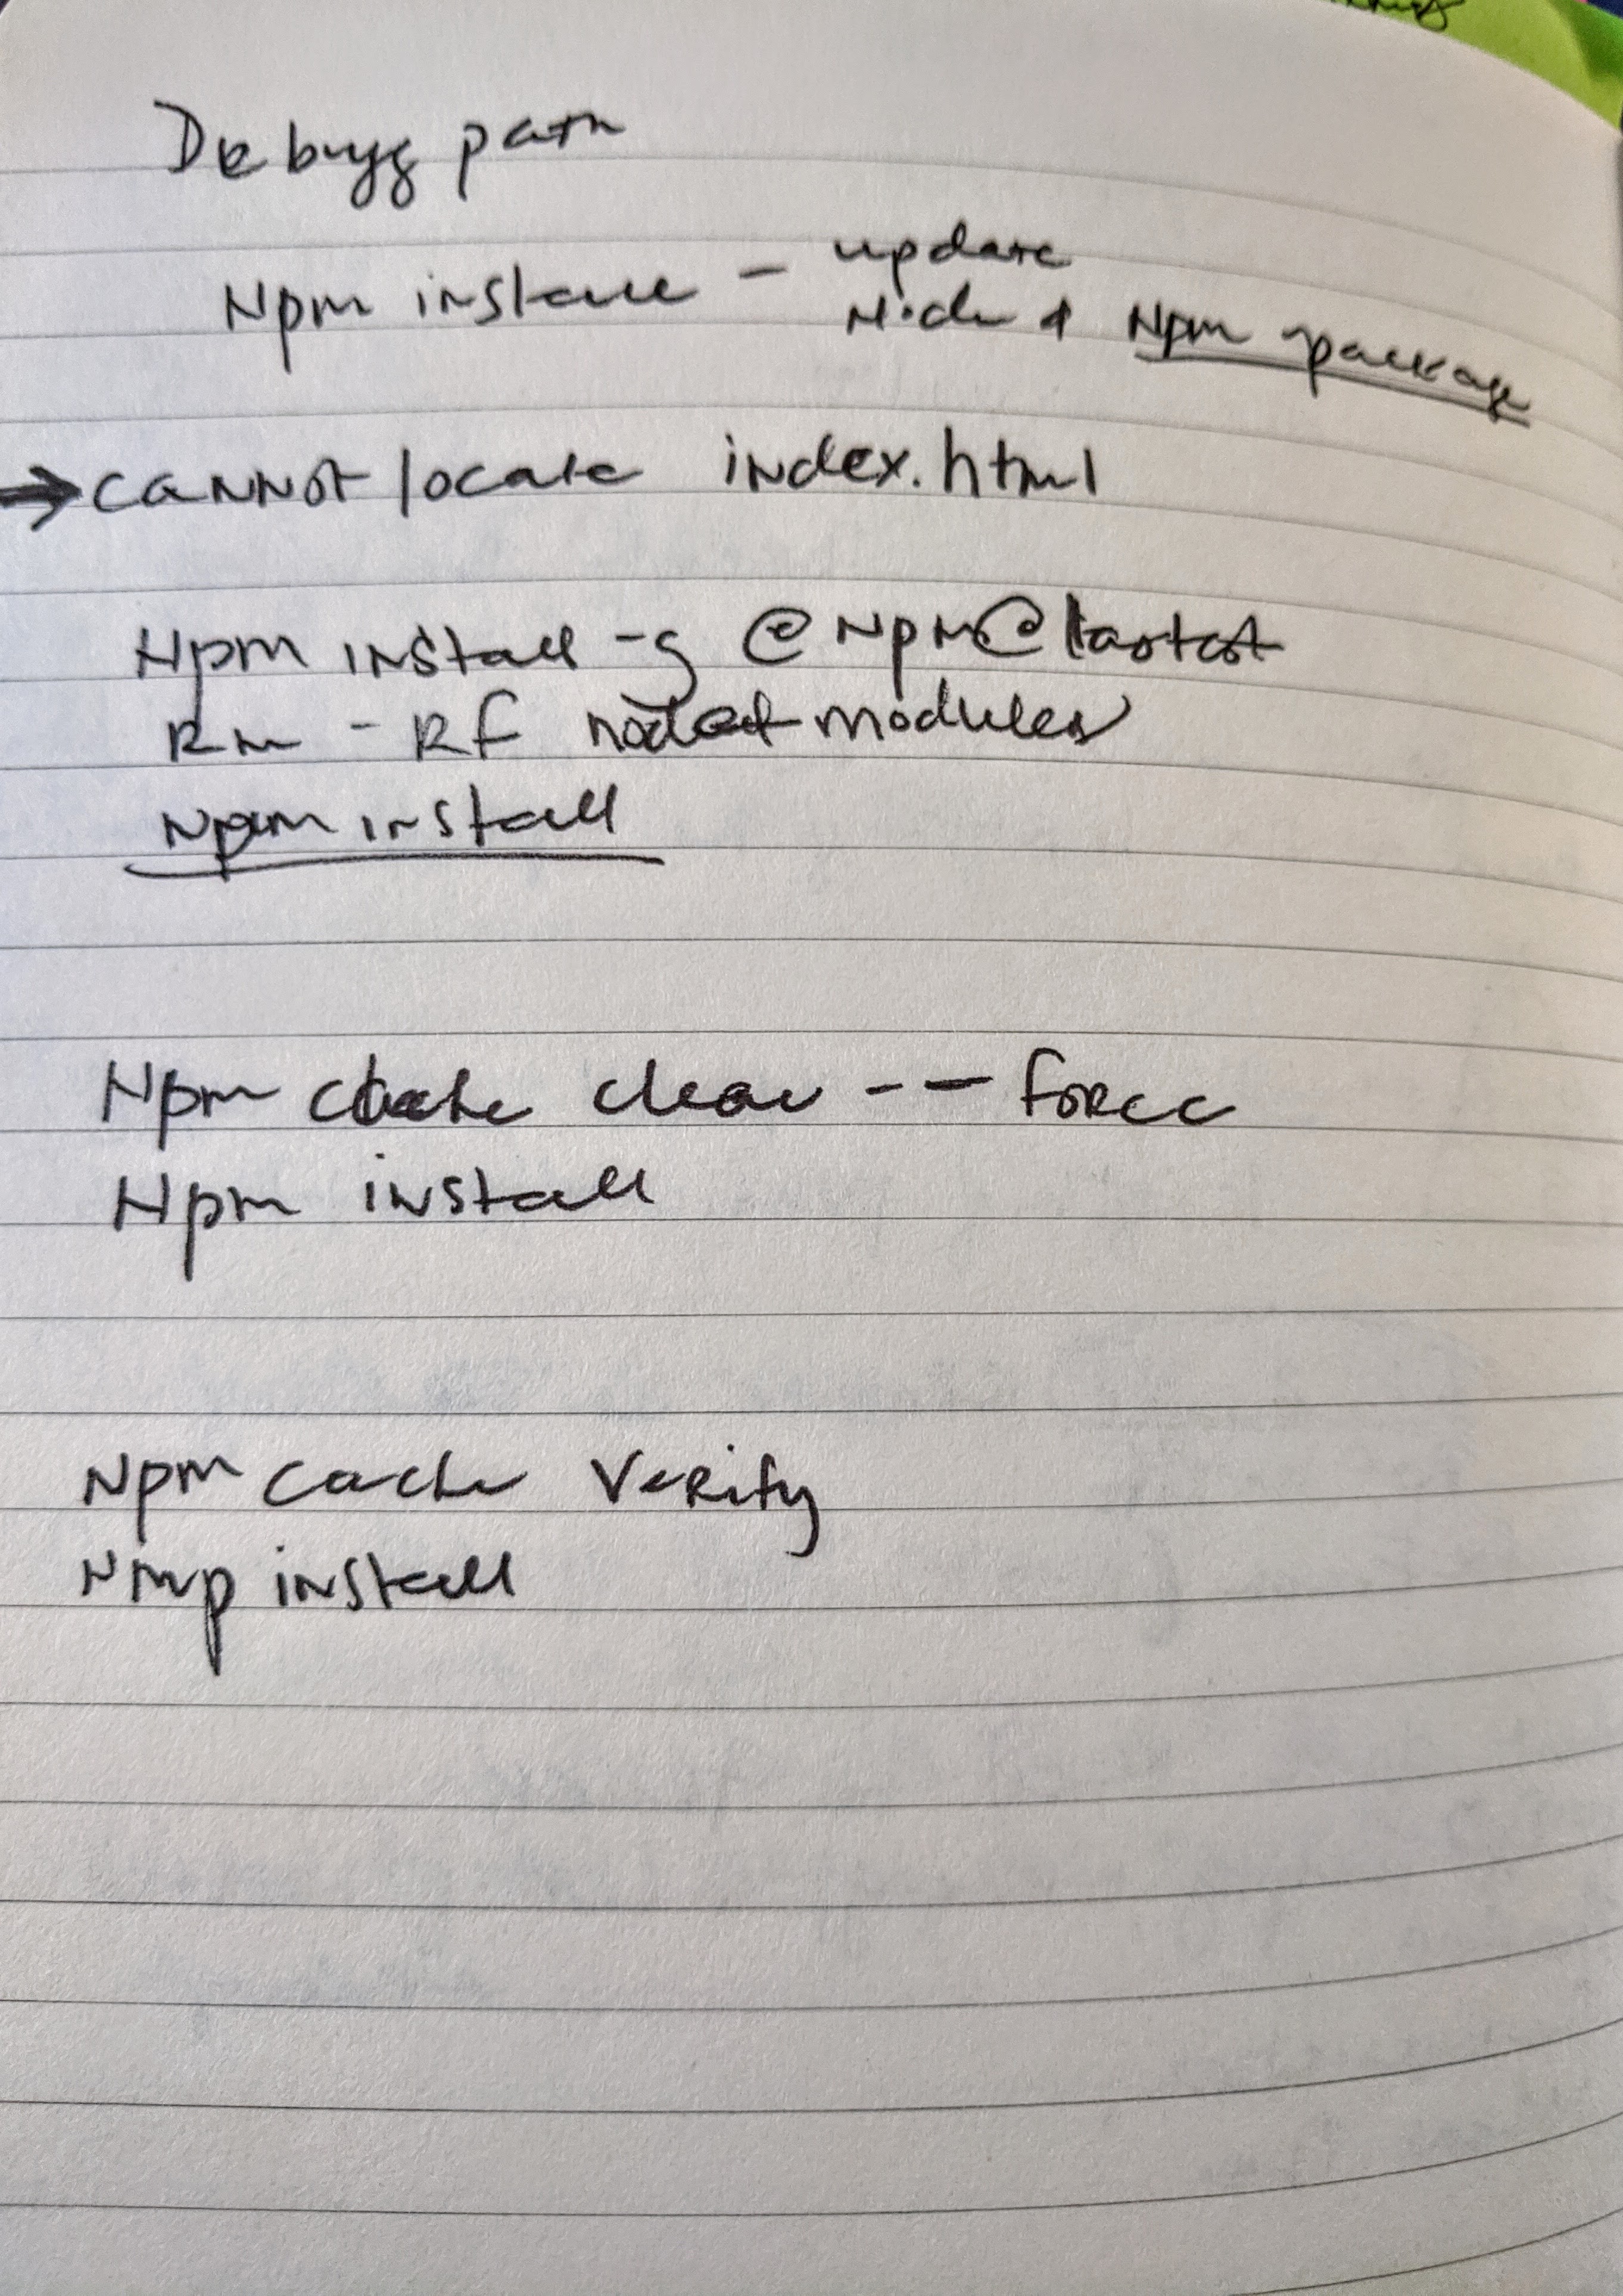 Debugg path
Npm install - update
Node & Npm package
→ cannot locate index.html
Npm install -g @npm@lastest
Rm - Rf node modules
Npm install
Npm cache clear -- force
Npm install
Npm cache verify
Nmp install